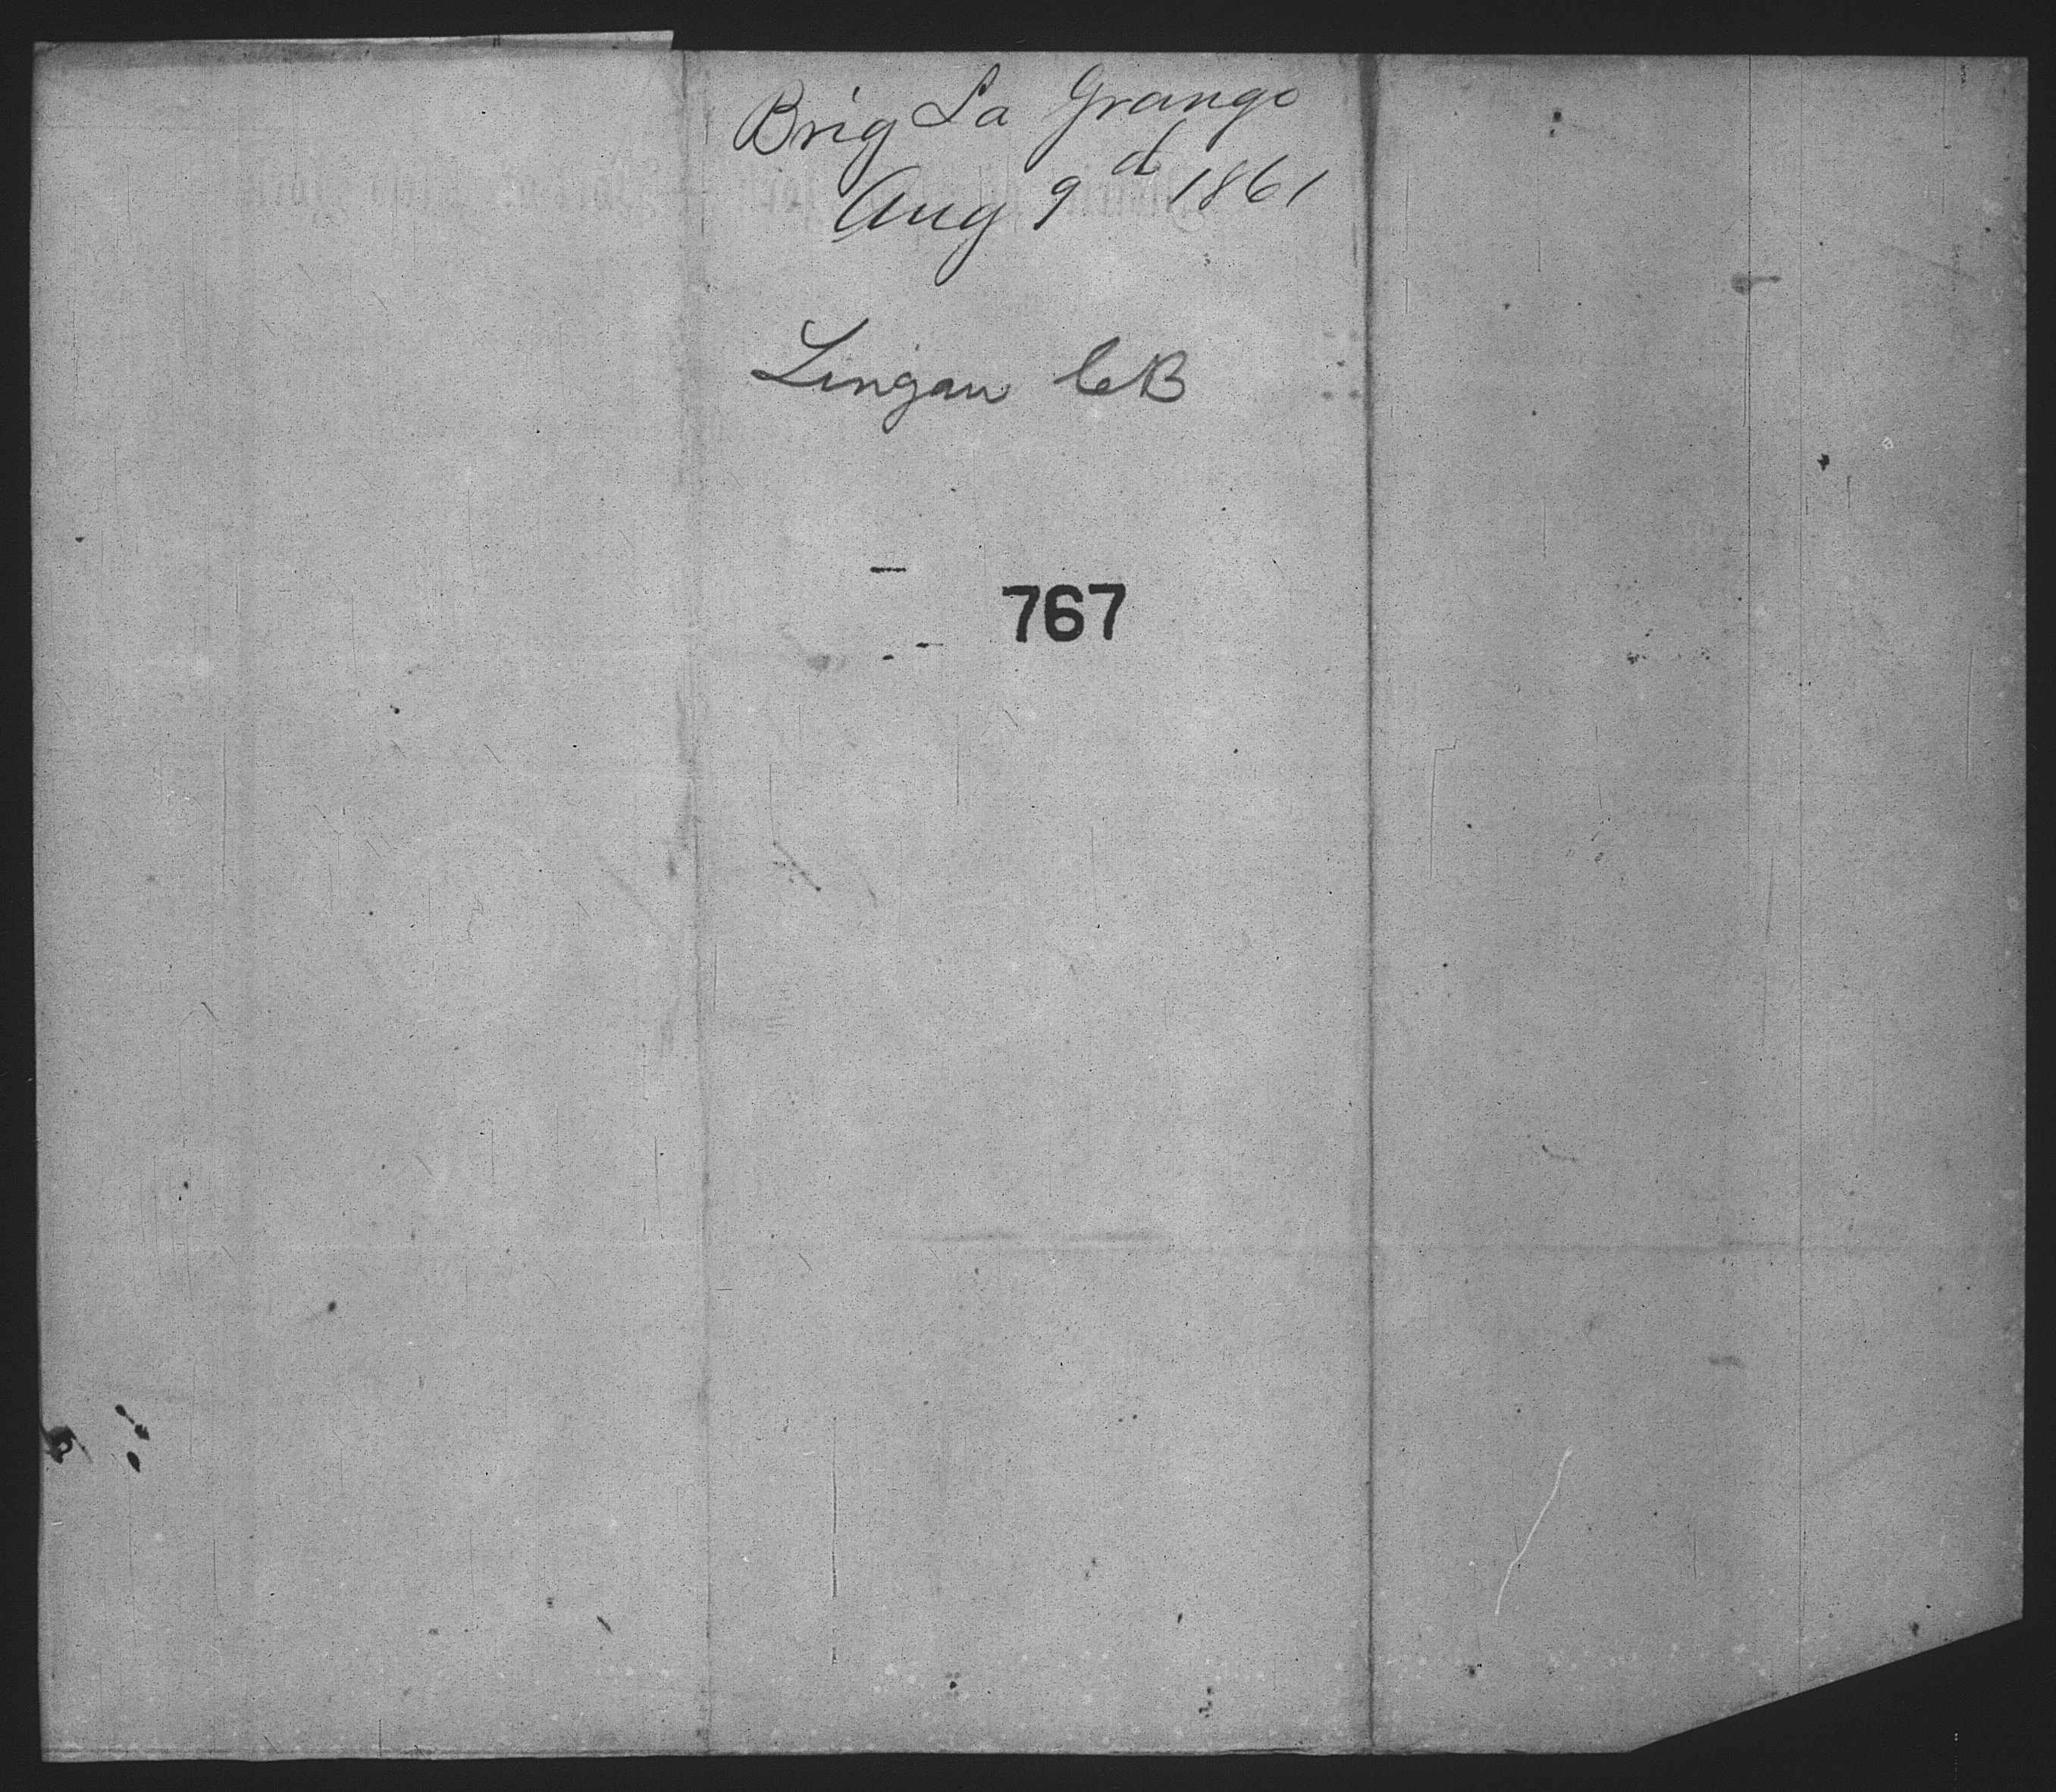 Brig La Grange
Aug 9d 1861
Lingan CB
767